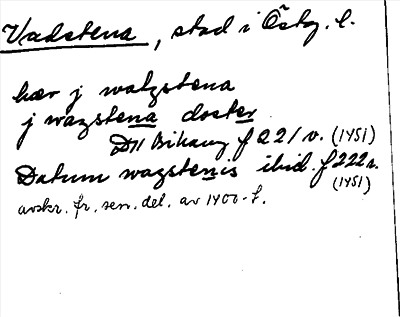 Vadstena, stad i Östg. l.
hær j watzstena
j wazstena closter
DH Bihang f 221 v. (1451)
Datum wazstenis ibid. f 222 r.
(1451)
avskr. fr. sen. del. av 1400-t.